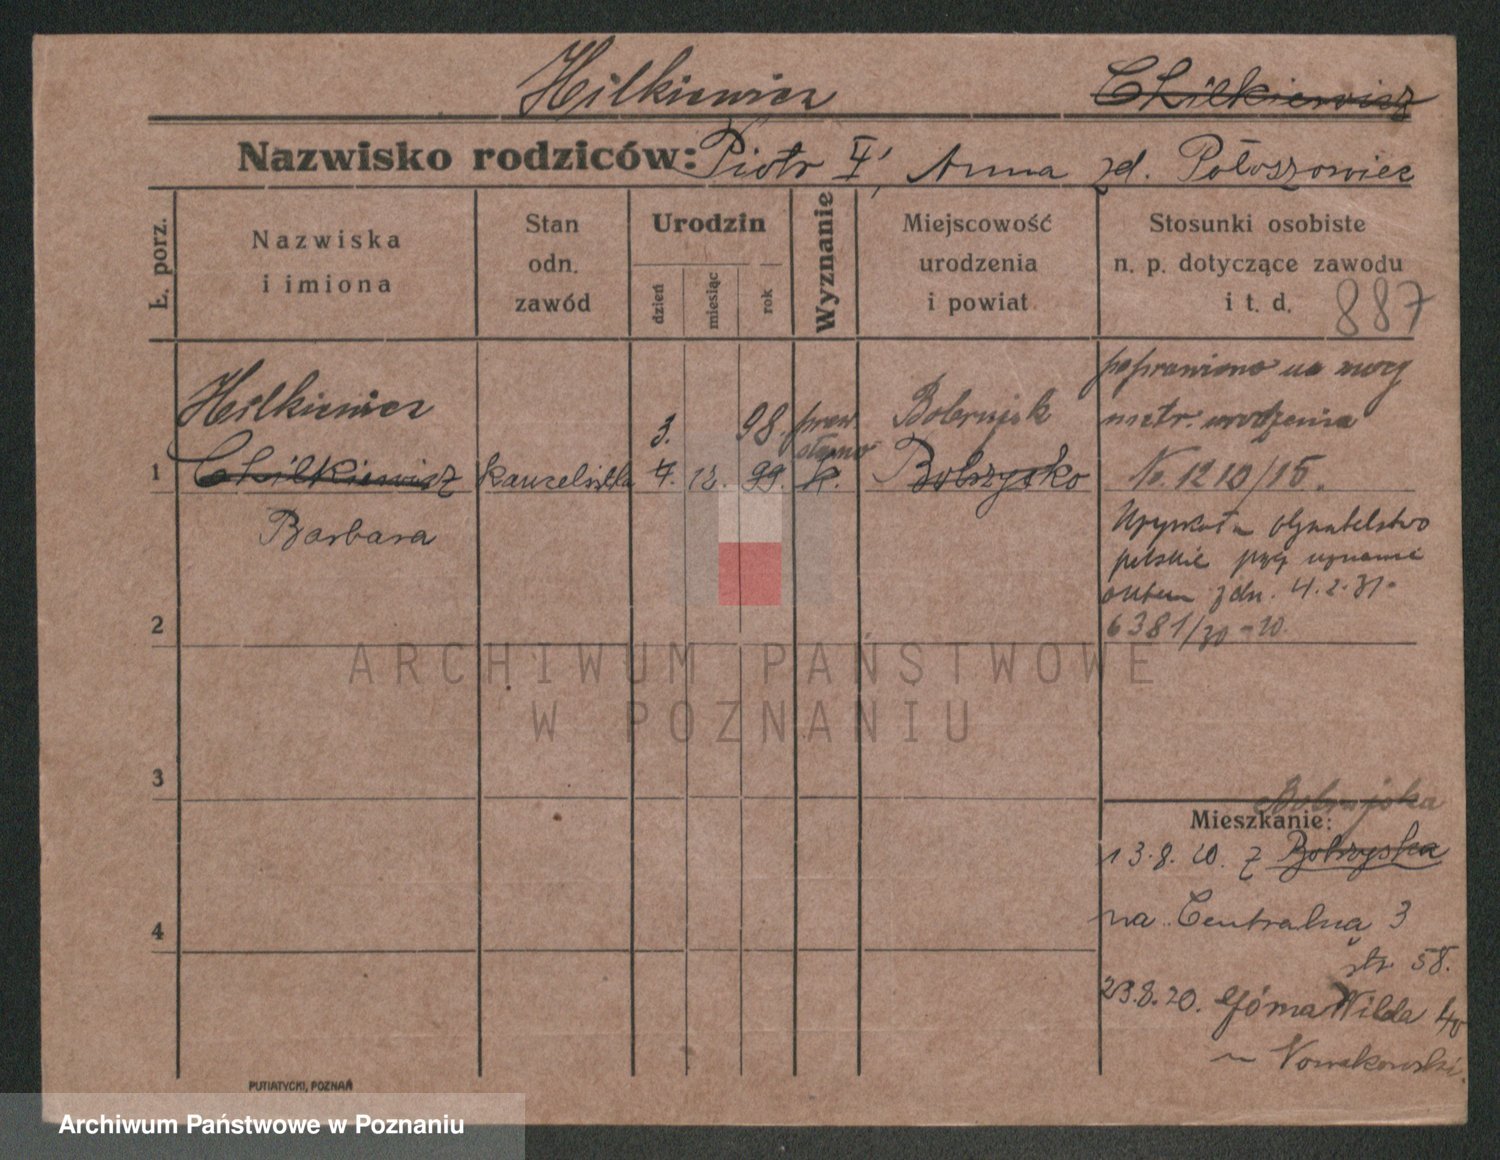 Hilkiewicz Chilkiewicz
Nazwisko rodziców: Piotr Anna zd. Połoszowiec
Ł. porz.
Nazwiska
i imiona
Stan
odn.
zawód
Urodzin
dzień
miesiąc
rok
Wyznanie
Miejscowość
urodzenia
i powiat
Stosunki osobiste
n. p. dotyczące zawodu
i t. d.
887
poprawiono na mocy
Hilkiewicz 3. 98. praw Bobrujsk metr. urodzenia
1 Chilkiewicz kancelistka 7. 12. 99. k. Bobrzysko No. 1210/15.
Barbara
obywatelstwo
polskie
zdn. 4.2.31.
6381/30
2
ARCHIWUM PAŃSTWOWE
W POZNANIU
3
Bobrujska
Mieszkanie:
13.8.20. z Bobryska
4
na Centralna 3
str 58.
23.8.20. Górna Wilda
Nowakowski.
PUTIATYCKI, POZNAŃ
Archiwum Państwowe w Poznaniu